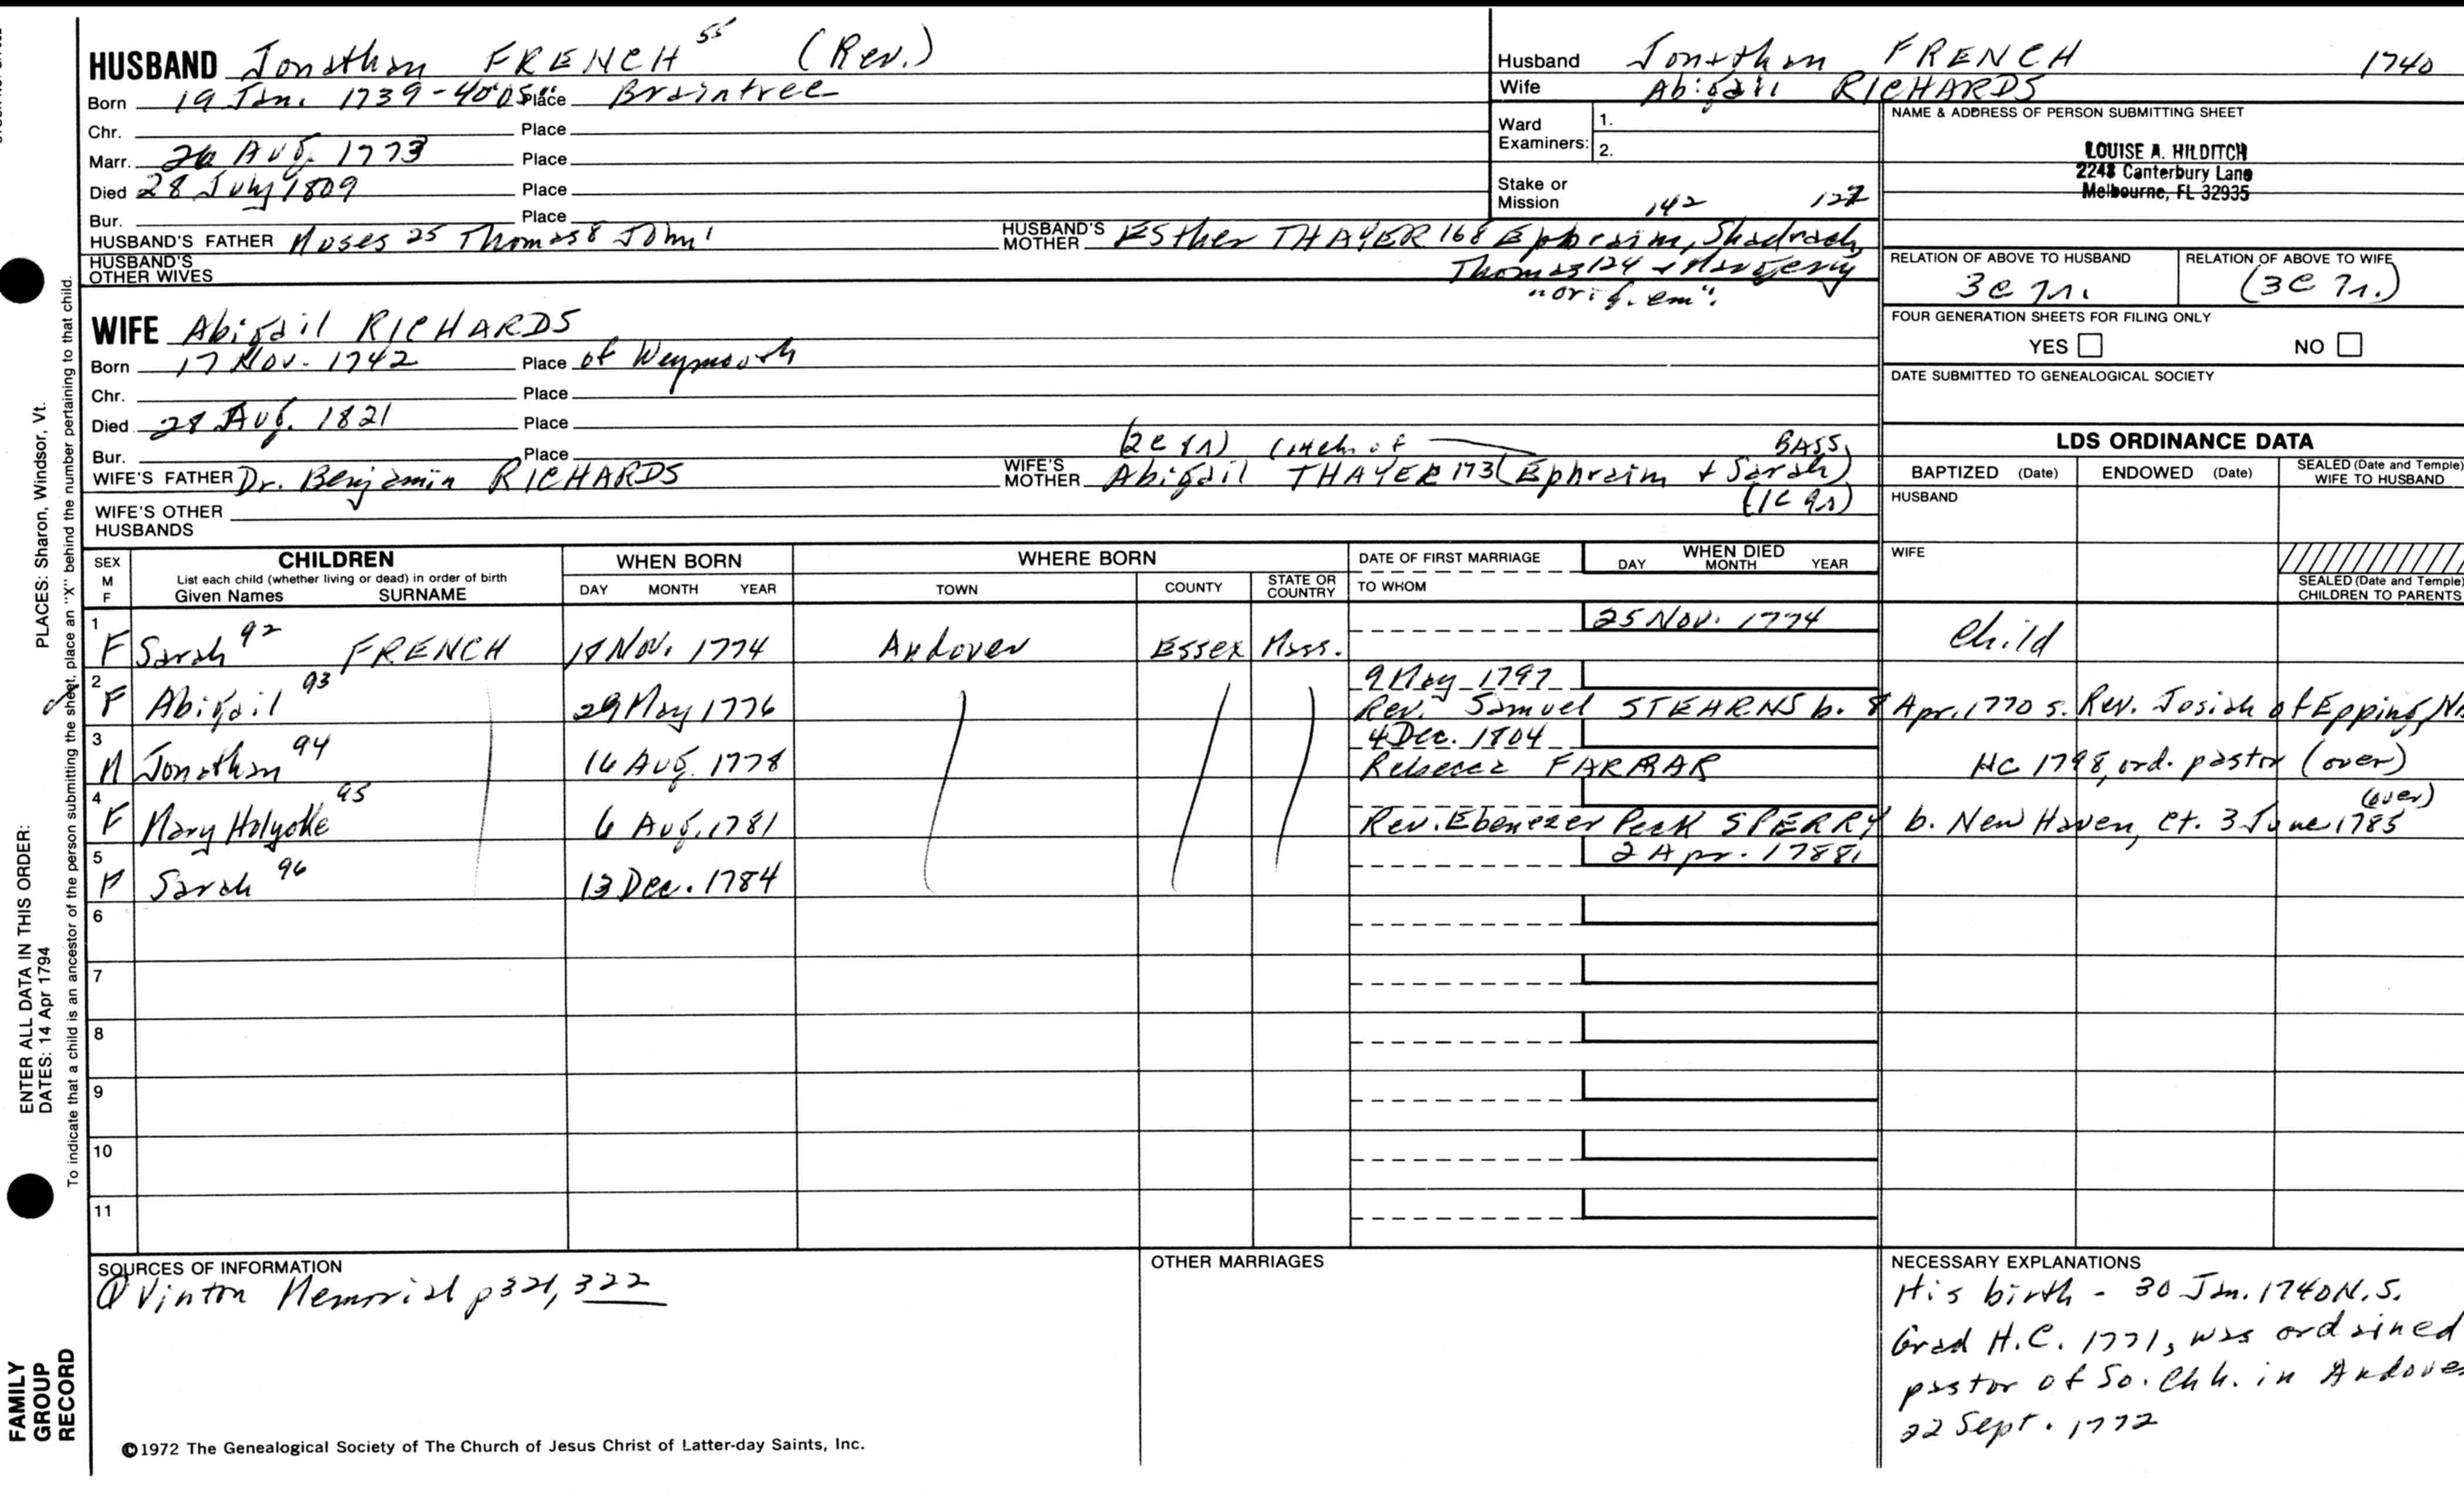 HUSBAND Jonathan FRENCH 55 (Rev.)
Born 19 Jan. 1739-40 "O.S." Place Braintree
Chr. Place
Marr. 26 Aug. 1773 Place
Died 28 July 1809 Place
Bur. Place
HUSBAND'S FATHER Moses 25 Thomas 8 John 1 HUSBAND'S MOTHER Esther THAYER 168 Ephraim, Shadrach,
Thomas 124 + Margery
"orig. em".
HUSBAND'S OTHER WIVES
Husband Jonathan FRENCH 1740
Wife Abigail RICHARDS
Ward Examiners: 1.
2.
Stake or Mission 142 127
NAME & ADDRESS OF PERSON SUBMITTING SHEET
LOUISE A. HILDITCH
2248 Canterbury Lane
Melbourne, FL 32935
RELATION OF ABOVE TO HUSBAND RELATION OF ABOVE TO WIFE
3C 7r. (3C 7r.)
FOUR GENERATION SHEETS FOR FILING ONLY
YES NO
DATE SUBMITTED TO GENEALOGICAL SOCIETY
WIFE Abigail RICHARDS
Born 17 Nov. 1742 Place of Weymouth
Chr. Place
Died 28 Aug. 1821 Place
Bur. Place
(2C 8r) BASS
WIFE'S FATHER Dr. Benjamin RICHARDS WIFE'S MOTHER Abigail THAYER 173 (Ephraim + Sarah)
(1C 9r)
WIFE'S OTHER HUSBANDS
LDS ORDINANCE DATA
BAPTIZED (Date) ENDOWED (Date) SEALED (Date and Temple) WIFE TO HUSBAND
HUSBAND
WIFE
SEALED (Date and Temple) CHILDREN TO PARENTS
SEX M F CHILDREN WHEN BORN WHERE BORN DATE OF FIRST MARRIAGE WHEN DIED
List each child (whether living or dead) in order of birth
Given Names SURNAME DAY MONTH YEAR TOWN COUNTY STATE OR COUNTRY TO WHOM DAY MONTH YEAR
25 Nov. 1774
1 F Sarah 92 FRENCH 18 Nov. 1774 Andover Essex Mass. Child
9 May 1797
2 F Abigail 93 29 May 1776 Rev. Samuel STEARNS b. 8 Apr. 1770 s. Rev. Josiah of Epping,
4 Dec. 1804
3 M Jonathan 94 16 Aug. 1778 Rebecca FARRAR HC 1798, ord. pastor (over)
(over)
4 F Mary Holyoke 95 6 Aug. 1781 Rev. Ebenezer Peck SPERRY b. New Haven, Ct. 3 June 1785
2 Apr. 1788
5 F Sarah 96 13 Dec. 1784
6
7
8
9
10
11
SOURCES OF INFORMATION
Vinton Memorial p 321, 322
OTHER MARRIAGES
NECESSARY EXPLANATIONS
His birth - 30 Jan. 1740 N.S.
Grad H.C. 1771, was ordained
pastor of So. Chh. in Andover
22 Sept. 1772
©1972 The Genealogical Society of The Church of Jesus Christ of Latter-day Saints, Inc.
PLACES: Sharon, Windsor, Vt.
ENTER ALL DATA IN THIS ORDER:
DATES: 14 Apr 1794
To indicate that a child is an ancestor of the person submitting the sheet, place an "X" behind the number pertaining to that child.
FAMILY
GROUP
RECORD